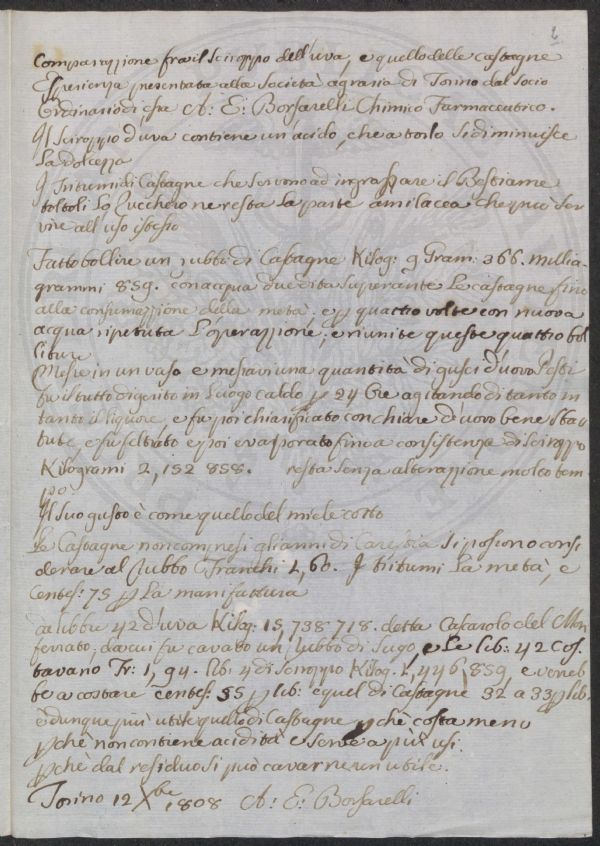 Comparazzione fra il Sciroppo dell'uva, e quello delle castagne
Esperienza presentata alla Società agraria di Torino dal Socio
Ordinario di essa A: E: Borsarelli Chimico Farmaceutico.
Il Sciroppo d'uva contiene un'acido, che a torlo si diminuisce
La dolcezza
I Tritumi di Castagne che servono ad ingrassare il Bestiame
toltoli Lo Zucchero ne resta La parte amilacea che può ser
vire all'uso istesso
Fatto bollire un rubbo di Castagne Kilog: 9 Gram: 366. Millia-
grammi 859. con acqua due dita superante Le castagne fino
alla consumazzione della metà. e p quattro volte con nuova
acqua ripetuta L'operazzione, e riunite queste quattro bol
liture
Mise in un vaso e messavi una quantità di gusci d'uovo Pesti
fu il tutto digerito in Luogo caldo p 24 Ore agitando di tanto in
tanto il liquore, e fu poi chiarificato con chiare d'uovo bene sbat
tute, e fu feltrato e poi evaporato fino a consistenza di Sciroppo
Kilogrami 2, 152 858. resta senza alterazzione molto tem
po
Il Suo gusto è come quello del miele cotto
Le Castagne non compresi gli anni di Carestia si possono consi
derare al Rubbo Franchi 1,60. I tritumi La metà, e
Centes: 75 p La manifattura
da libbre 42 d'uva Kilog: 15,738 718. detta Cascarolo del Mon
ferrato, da cui fu cavato un Rubbo di Sugo, e Le lib: 42 Cos
tavano Fr: 1,94. lib: 4 di sciroppo Kilog: 1,446,859, e vereb
be a costare Centes: 55 p lib: e quel di Castagne 32 a 33 p lib:
è dunque più utile quello di Castagne pchè costa meno
pchè non contiene acidità e serve a più usi
pchè dal residuo si può cavarne un utile.
Torino 12 Xbre 1808 A: E: Borsarelli